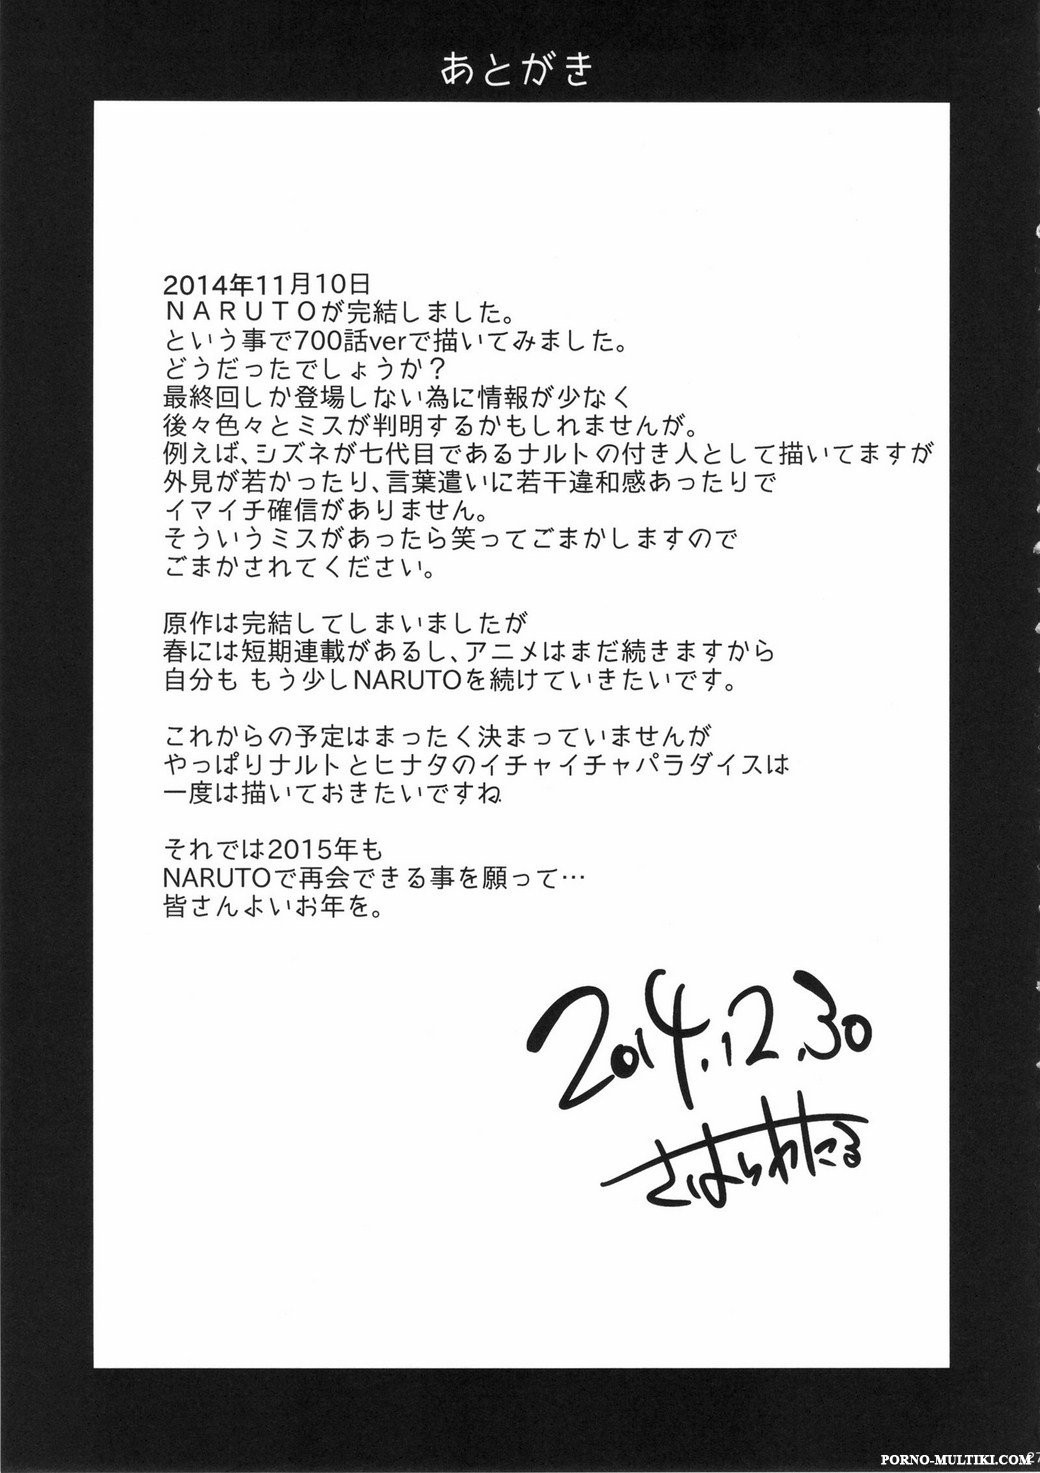 あとがき
2014年11月10日
ＮＡＲＵＴＯが完結しました。
という事で700話verで描いてみました。
どうだったでしょうか？
最終回しか登場しない為に情報が少なく
後々色々とミスが判明するかもしれませんが。
例えば、シズネが七代目であるナルトの付き人として描いてますが
外見が若かったり、言葉遣いに若干違和感あったりで
イマイチ確信がありません。
そういうミスがあったら笑ってごまかしますので
ごまかされてください。
原作は完結してしまいましたが
春には短期連載があるし、アニメはまだ続きますから
自分も もう少しNARUTOを続けていきたいです。
これからの予定はまったく決まっていませんが
やっぱりナルトとヒナタのイチャイチャパラダイスは
一度は描いておきたいですね
それでは2015年も
NARUTOで再会できる事を願って…
皆さんよいお年を。
2014.12.30
さはらわたる
27
PORNO-MULTIKI.COM